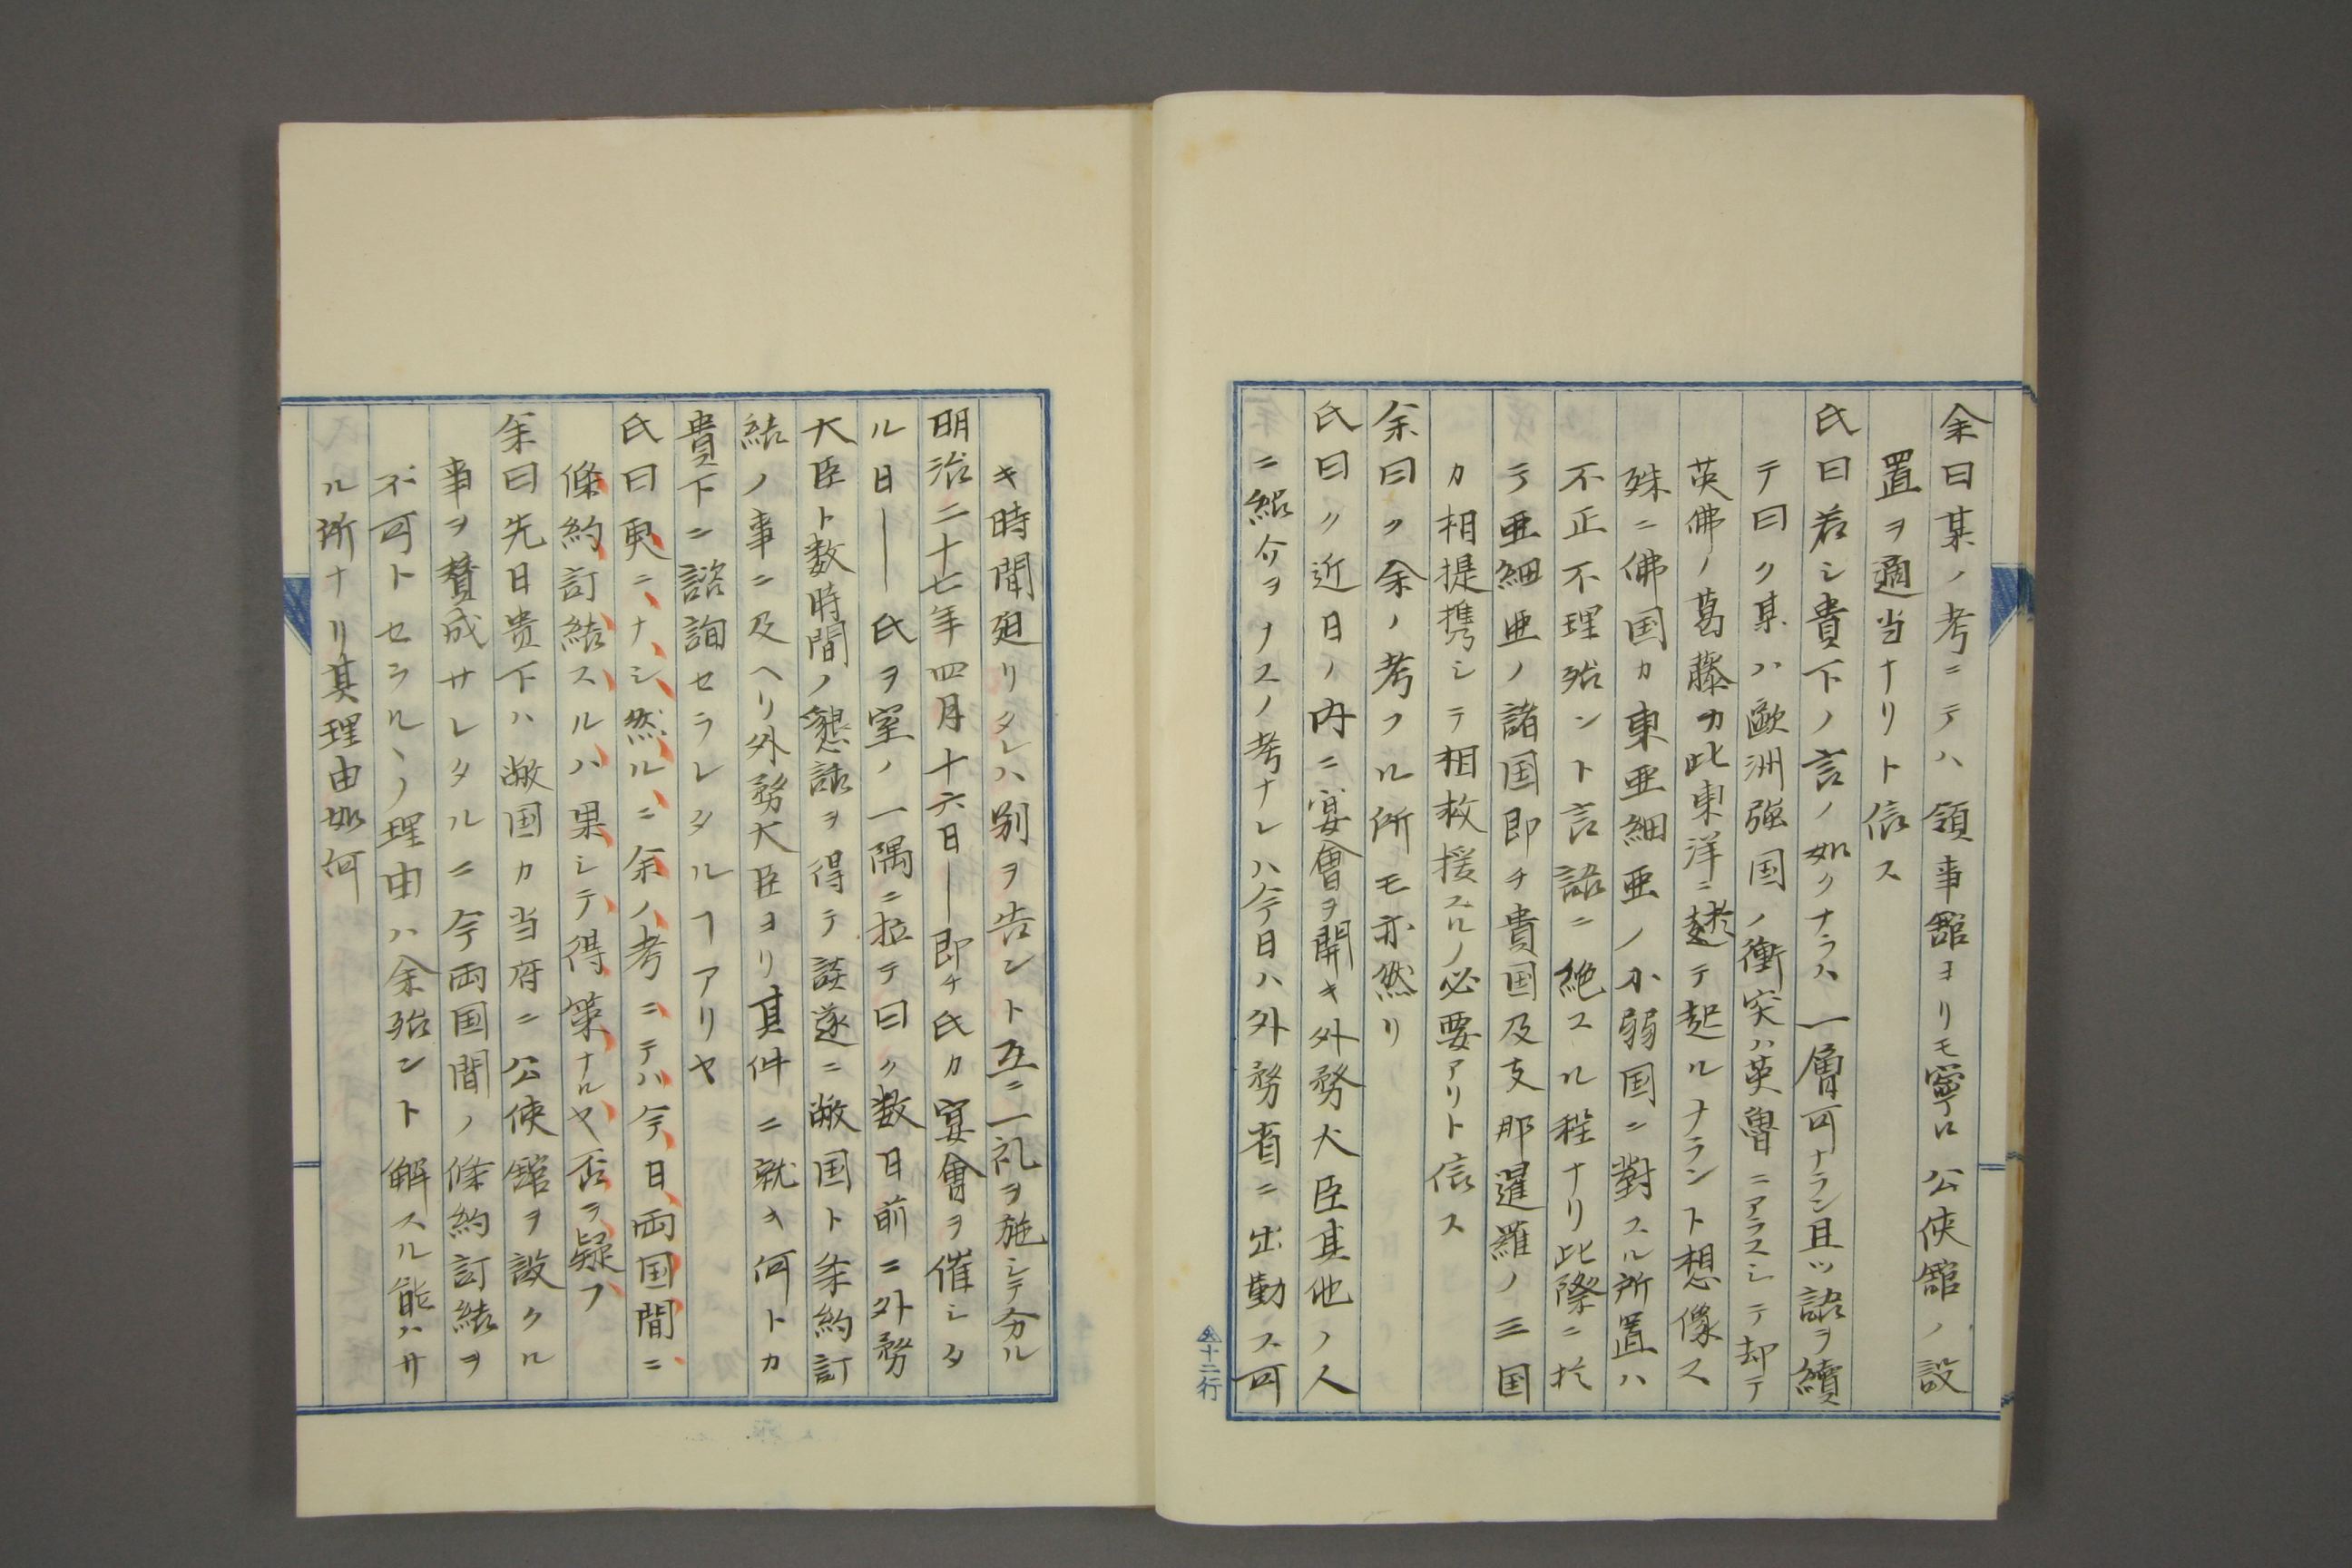 余曰某ノ考ニテハ領事舘ヨリモ寧ロ公使舘ノ設
置ヲ適当ナリト信ス
氏曰若シ貴下ノ言ノ如クナラハ一層可ナラン且ツ語ヲ續
テ曰ク某ハ歐洲強国ノ衝突ハ英魯ニアラスシテ却テ
英佛ノ葛藤カ此東洋ニ於テ起ルナラント想像ス
殊ニ佛国カ東亜細亜ノ小弱国ニ對スル所置ハ
不正不理殆ント言語ニ絶スル程ナリ此際ニ於
テ亜細亜ノ諸国即チ貴国及支那暹羅ノ三国
カ相提携シテ相救援スルノ必要アリト信ス
余曰ク余ノ考フル所モ亦然リ
氏曰ク近日ノ内ニ宴會ヲ開キ外務大臣其他ノ人
ニ紹介ヲナスノ考ナレハ今日ハ外務省ニ出勤ス可
十二行
キ時間廻リタレハ別ヲ告ント互ニ一礼ヲ施シテ分ル
明治二十七年四月十六日―即チ氏カ宴會ヲ催シタ
ル日――氏ヲ室ノ一隅ニ拉テ曰ク数日前ニ外務
大臣ト数時間ノ懇話ヲ得テ談遂ニ敝国ト条約訂
結ノ事ニ及ヘリ外務大臣ヨリ其件ニ就キ何トカ
貴下ニ諮詢セラレタルヿアリヤ
氏曰更ニナシ然ルニ余ノ考ニテハ今日両国間ニ
條約訂結スルハ果シテ得策ナルヤ否ヲ疑フ
余曰先日貴下ハ敝国カ当府ニ公使舘ヲ設クル
事ヲ賛成サレタルニ今両国間ノ條約訂結ヲ
不可トセラルヽノ理由ハ余殆ント解スル能ハサ
ル所ナリ其理由如何